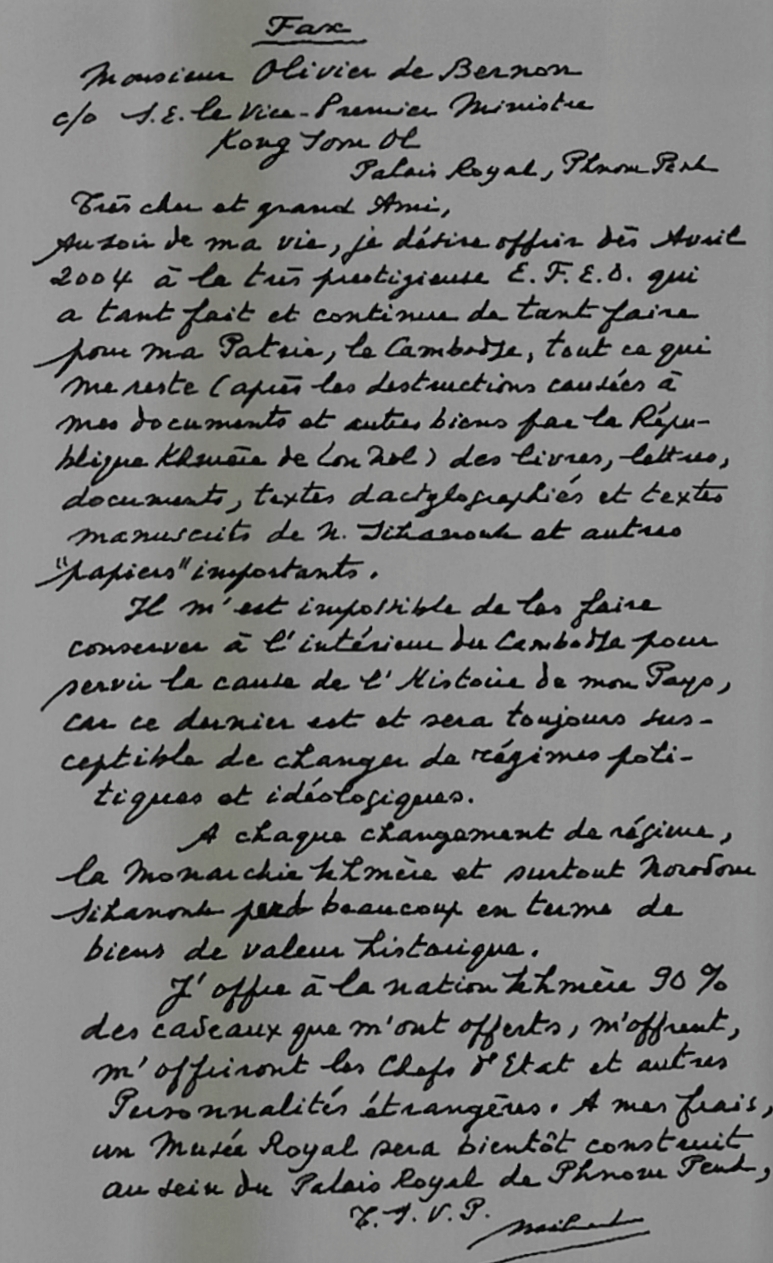 Fax
Monsieur Olivier de Bernon
c/o S.E. le Vice-Premier Ministre
Kong Som Ol
Palais Royal, Phnom Penh
Très cher et grand Ami,
Au soir de ma vie, je désire offrir dès Avril
2004 à la très prestigieuse E.F.E.O. qui
a tant fait et continue de tant faire
pour ma Patrie, le Cambodge, tout ce qui
me reste (après les destructions causées à
mes documents et autres biens par la Répu-
blique Khmère de Lon Nol) des livres, lettres,
documents, textes dactylographiés et textes
manuscrits de N. Sihanouk et autres
"papiers" importants.
Il m'est impossible de les faire
conserver à l'intérieur du Cambodge pour
servir la cause de l'Histoire de mon Pays,
car ce dernier est et sera toujours sus-
ceptible de changer de régimes poli-
tiques et idéologiques.
A chaque changement de régime,
la Monarchie khmère et surtout Norodom
Sihanouk perd beaucoup en terme de
biens de valeur historique.
J'offre à la nation khmère 90 %
des cadeaux que m'ont offerts, m'offrent,
m'offriront les Chefs d'Etat et autres
Personnalités étrangères. A mes frais,
un Musée Royal sera bientôt construit
au sein du Palais Royal de Phnom Penh,
T.S.V.P.